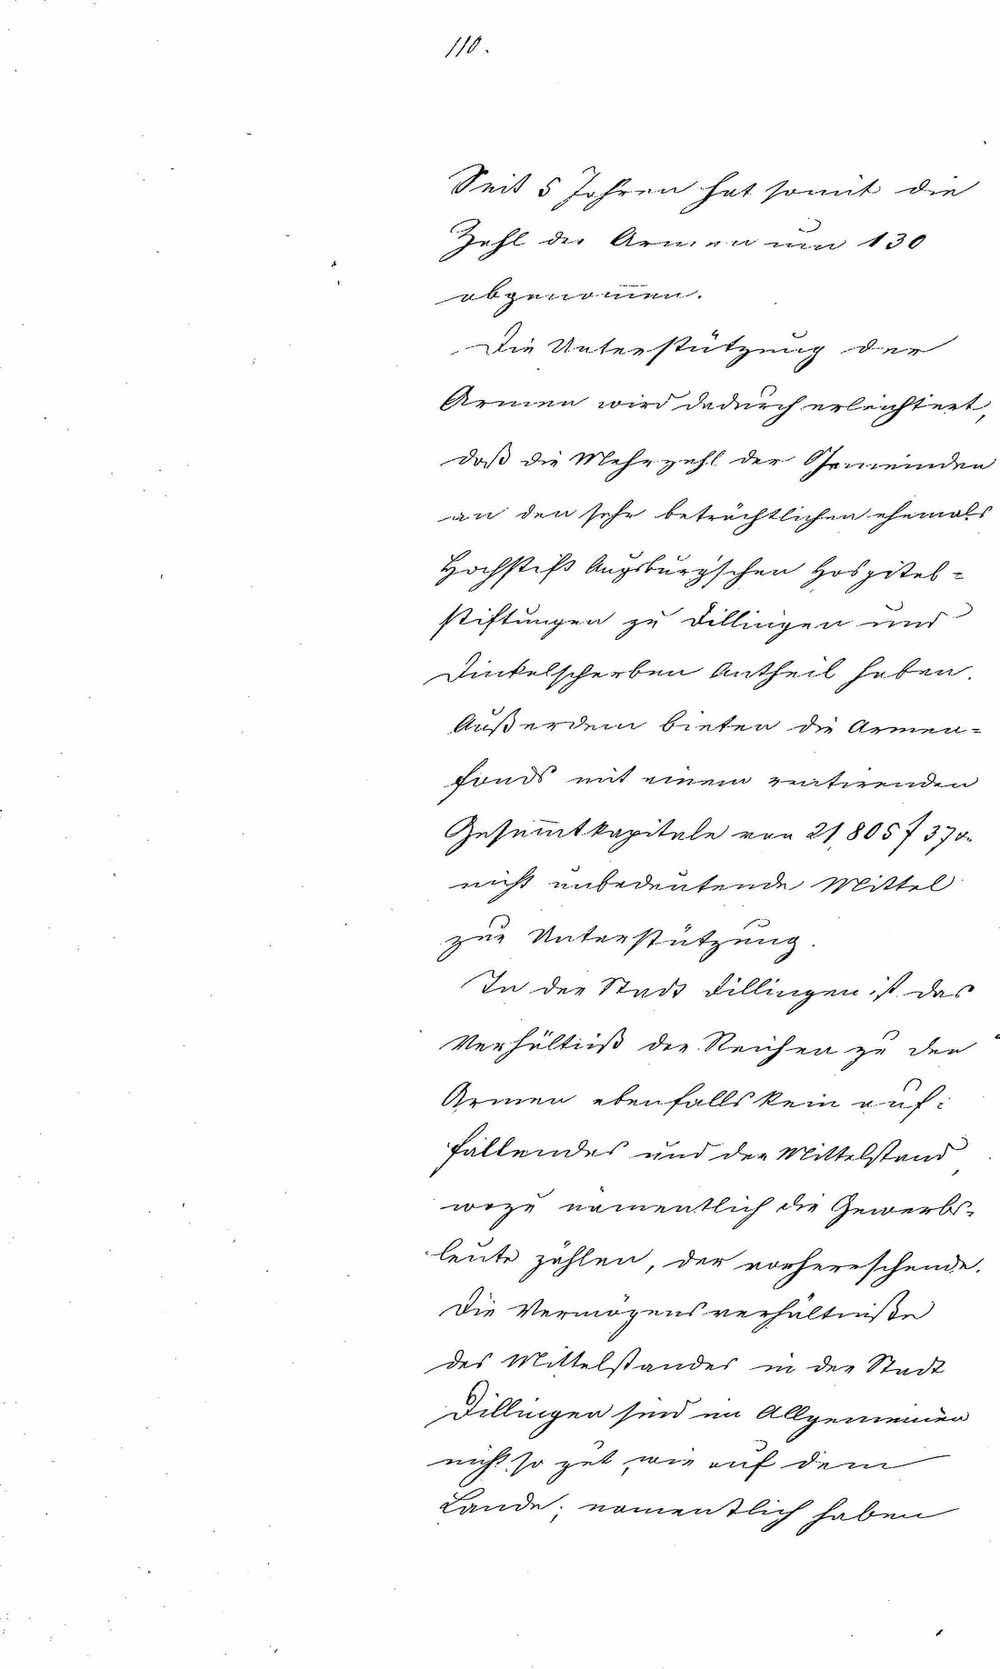 110.
Seit 5 Jahren hat somit die
Zahl der Armen um 130
abgenom̅en.
Die Unterstützung der
Armen wird dadurch erleichtert,
daß die Mehrzahl der Gemeinden
an den sehr beträchtlichen ehemals
Hochstift Augsburg'schen Hospital-
stiftungen zu Dillingen und
Dinkelscherben Antheil haben.
Außerdem bieten die Armen-
fonds mit einem rentirenden
Gesam̅tkapitale von 21,805 f 37 x.
nicht unbedeutende Mittel
zur Unterstützung.
In der Stadt Dillingen ist das
Verhältniß der Reichen zu den
Armen ebenfalls kein auf-
fallendes und der Mittelstand,
wozu namentlich die Gewerbs-
leute zählen, der vorherrschende.
Die Vermögensverhältniße
des Mittelstandes in der Stadt
Dillingen sind im Allgemeinen
nicht so gut, wie auf dem
Lande; namentlich haben